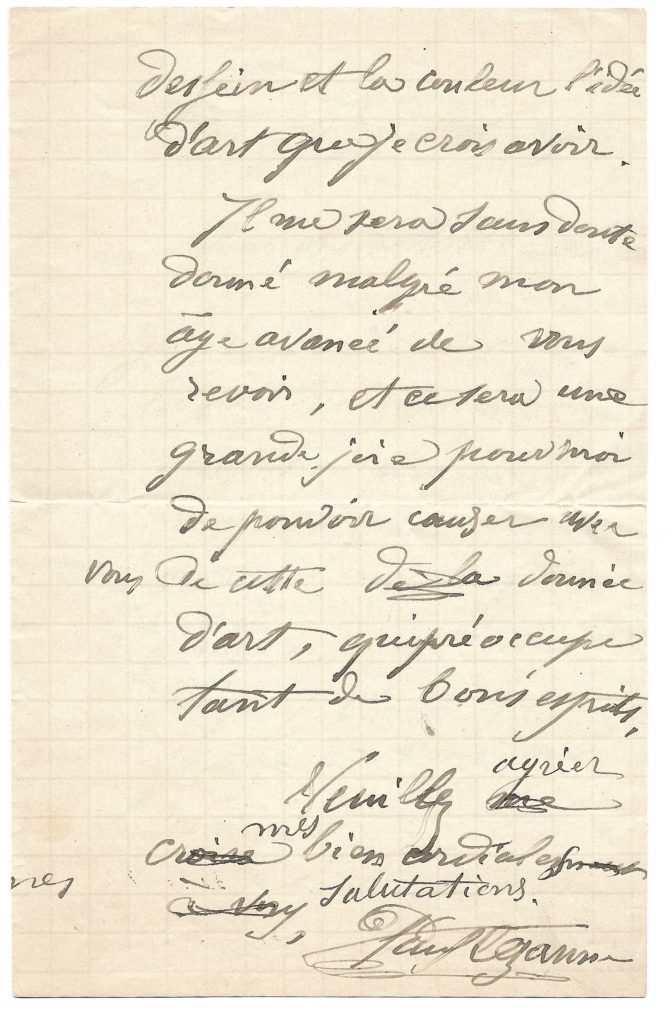 dessein et la couleur l'idée
d'art que je crois avoir.
Il me sera sans doute
donné malgré mon
âge avancé de vous
revoir, et ce sera une
grande joie pour moi
de pouvoir causer avec
vous de cette de la donnée
d'art, qui préoccupe
tant de bons esprits,
agréer
Veuillez me
mes
croire bien cordiales
nes à vous salutations.
Paul Cezanne